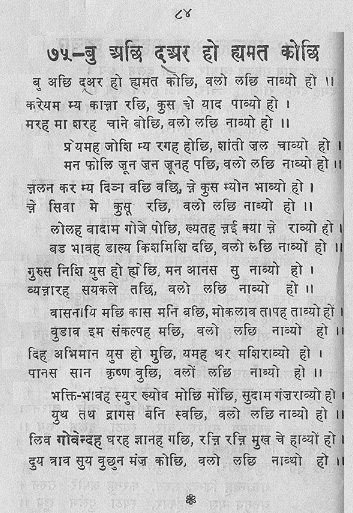 ८४
७५–बु अछि दॵर हो ह्यमत कोछि
बु अछि दॵर हो ह्यमत कोछि, वलो लछि नाव्यो हो ।
करेयम म्य कान्ना रछि, कुस चे याद पाव्यो हो ।
मरह मा शरह चाने बोछि, वलो लछि नाव्यो हो ।
प्रेयमह जोशि म्य रगह होछि, शांती जल चाव्यो हो ।
मन फोलि जून जन जूनह पछि, वलो लछि नाव्यो हो ।।
न्नलन कर म्य दिञ्ना वछि वछि, न्ने कुस म्योन भाव्यो हो ।
न्ने सिवा मे कुसू रछि, वलो लछि नाव्यो हो ।
लोलह बादाम गोजे पोछि, ल्यतह न्नई क्या न्ने राव्यो हो ।
बड भावह डाल्य किशमिशि दछि, वलो लछि नाव्यों हो ।
गुरुस निशि युस हो ह्यछि, मन आनस सु नाव्यो हो ।
व्यन्नारह सयकले तछि, वलो लछि नाव्यो हो ।
वासनायि मछि कास मनि वछि, मोकलाव तापह ताव्यो हो ।
वुडाव इम संकल्पह मछि, वलो लछि नाव्यो हो ।
दिह अभिमान युस हो मुछि, यमह थर मशिराव्यो हो ।
पानस सान कृष्ण वुछि, वलों लछि नाव्यो हो ।
भक्ति-भावह स्युर ख्योव मोछि मोछि, सुदाम गंजराव्यो हो ।
युथ तथ द्रागस बनि स्वछि, वलो लछि नाव्यो हो ।
लिव गोवेन्दह बरह ज्ञानह गछि, रन्नि रन्नि मुख चे हाव्यों हो ।
दुय त्राव सुय वुछुन मंज़ कोछि, वलो लछि नाव्यो हो ।